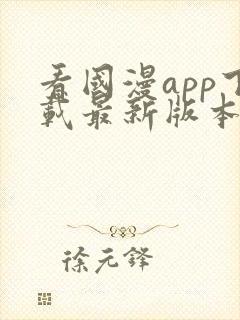 看國漫app下
載最新版本
徐元鋒